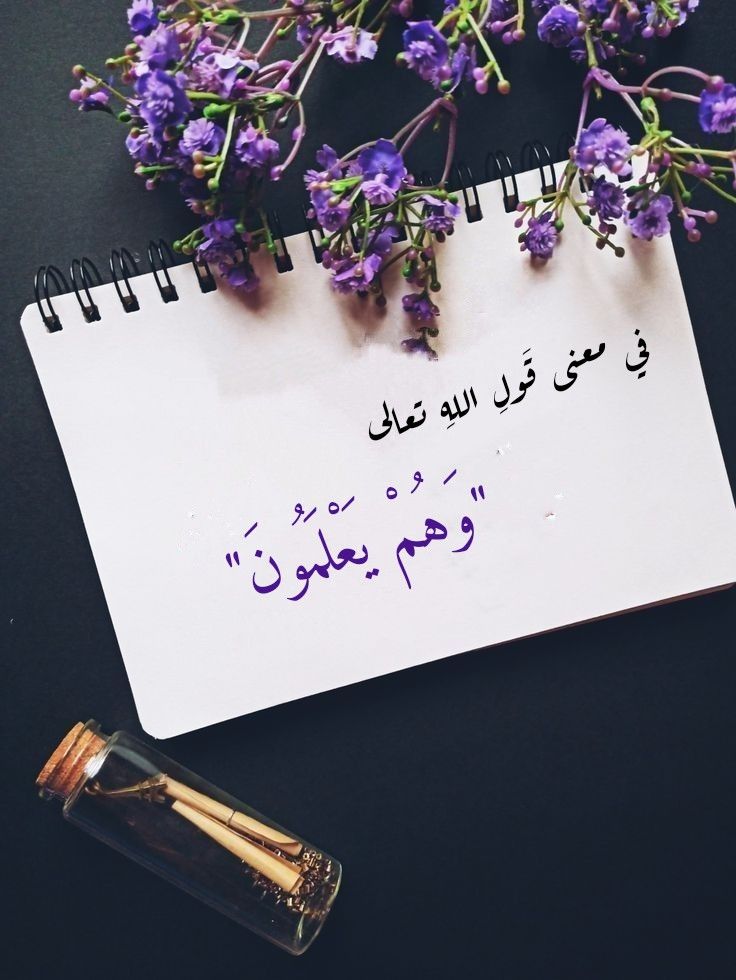 في معنى قَولِ اللهِ تعالى
"وَهُمْ يَعْلَمُونَ"